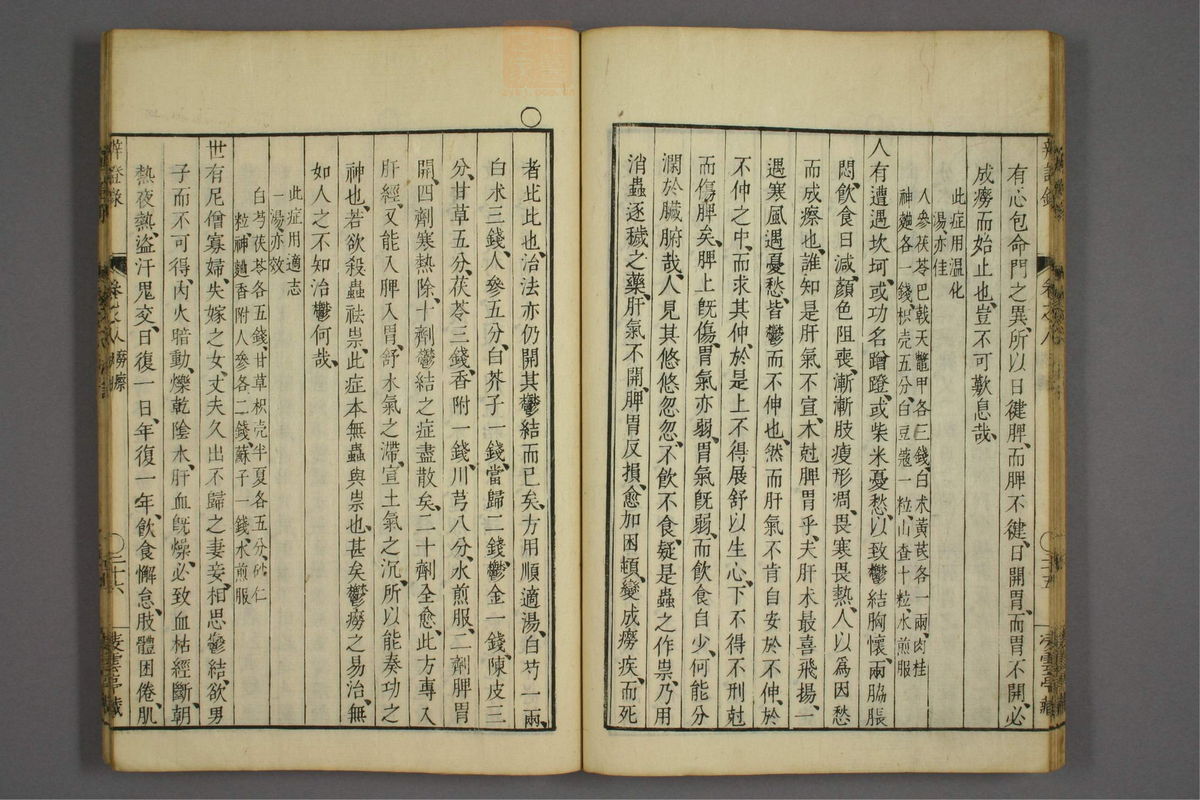 有心包命門之異、所以日健脾、而脾不健、日開胃、而胃不開、必
成癆而始止也、豈不可歎息哉、
此症用溫化
湯亦佳
人參茯苓巴戟天鱉甲各三錢、白朮黃芪各一兩、肉桂
神麯各一錢、枳壳五分、白豆蔻一粒、山查十粒、水煎服
人有遭遇坎坷、或功名蹭蹬、或柴米憂愁、以致鬱結胸懷、兩脇脹
悶、飲食日減、顏色阻喪、漸漸肢瘦形凋、畏寒畏熱、人以為因愁
而成瘵也、誰知是肝氣不宣、木尅脾胃乎、夫肝木最喜飛揚、一
遇寒風、遇憂愁、皆鬱而不伸也、然而肝氣不肯自安於不伸、於
不伸之中、而求其伸、於是上不得展舒以生心、下不得不刑尅
而傷脾矣、脾上旣傷、胃氣亦弱、胃氣旣弱、而飲食自少、何能分
潤於臟腑哉、人見其悠悠忽忽、不飲不食、疑是蟲之作祟、乃用
消蟲逐穢之藥、肝氣不開、脾胃反損、愈加困頓、變成癆疾、而死
者比比也、治法亦仍開其鬱結而已矣、方用順適湯、白芍一兩、
白朮三錢、人參五分、白芥子一錢、當歸二錢、鬱金一錢、陳皮三
分、甘草五分、茯苓三錢、香附一錢、川芎八分、水煎服、二劑脾胃
開、四劑寒熱除、十劑鬱結之症盡散矣、二十劑全愈、此方專入
肝經、又能入脾入胃、舒木氣之滯、宣土氣之沉、所以能奏功之
神也、若欲殺蟲祛祟、此症本無蟲與祟也、甚矣鬱癆之易治、無
如人之不知治鬱何哉、
此症用適志
一湯亦效
白芍茯苓各五錢、甘草枳壳半夏各五分、砂仁
一粒、神麯香附人參各二錢、蘇子一錢、水煎服
世有尼僧寡婦、失嫁之女、丈夫久出不歸之妻妾、相思鬱結、欲男
子而不可得、內火暗動、爍乾陰水、肝血旣燥、必致血枯經斷、朝
熱夜熱、盜汗鬼交、日復一日、年復一年、飲食懈怠、肢體困倦、肌
辨證錄
卷之八
癆瘵
二十六